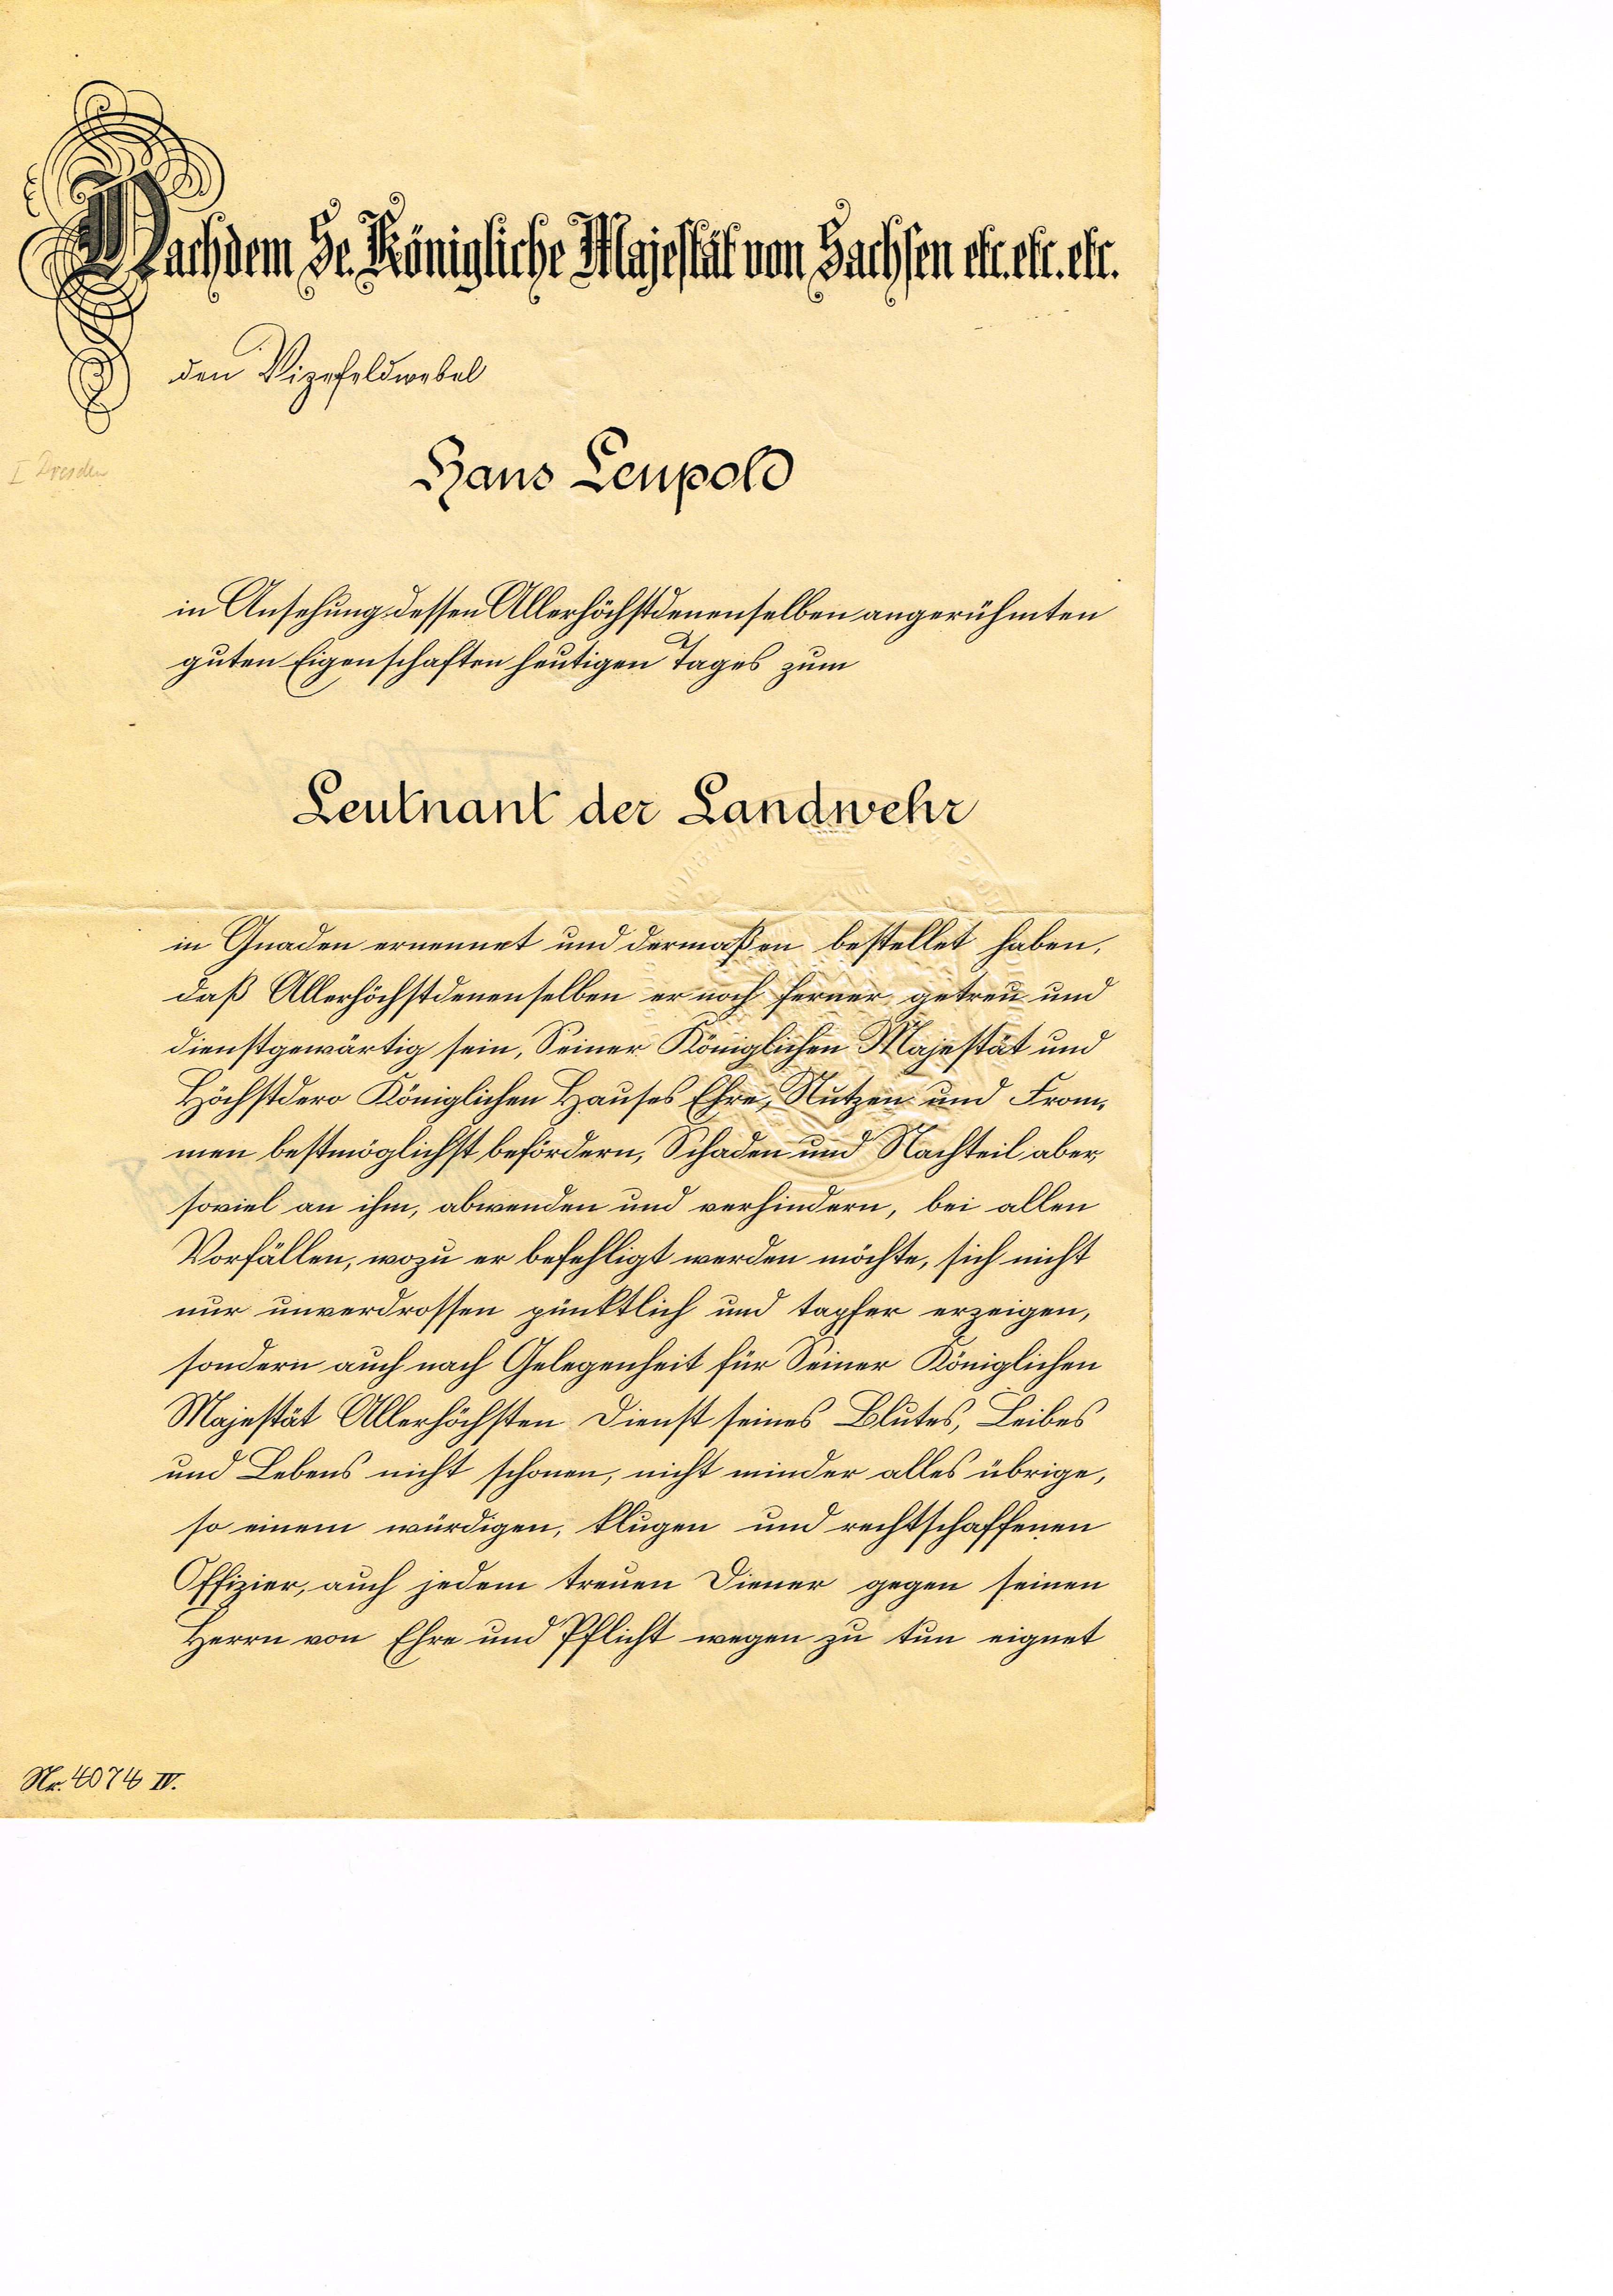 Nachdem Se. Königliche Majestät von Sachsen etc. etc. etc.
den Vizefeldwebel
I Dresden
Hans Leupold
in Ansehung dessen Allerhöchstdenenselben angerühmten
guten Eigenschaften heutigen Tages zum
Leutnant der Landwehr
in Gnaden ernennet und dermaßen bestellet haben,
daß Allerhöchstdenenselben er noch ferner getreu und
dienstgewärtig sein, Seiner Königlichen Majestät und
Höchstdero Königlichen Hauses Ehre, Nutzen und From-
men bestmöglichst befördern, Schaden und Nachteil aber,
soviel an ihm, abwenden und verhindern, bei allen
Vorfällen, wozu er befehligt werden möchte, sich nicht
nur unverdrossen pünktlich und tapfer erzeigen,
sondern auch nach Gelegenheit für Seiner Königlichen
Majestät Allerhöchsten Dienst seines Blutes, Leibes
und Lebens nicht schonen, nicht minder alles übrige,
so einem würdigen, klugen und rechtschaffenen
Offizier, auch jedem treuen Diener gegen seinen
Herrn von Ehre und Pflicht wegen zu tun eignet
Nr. 4074 IV.